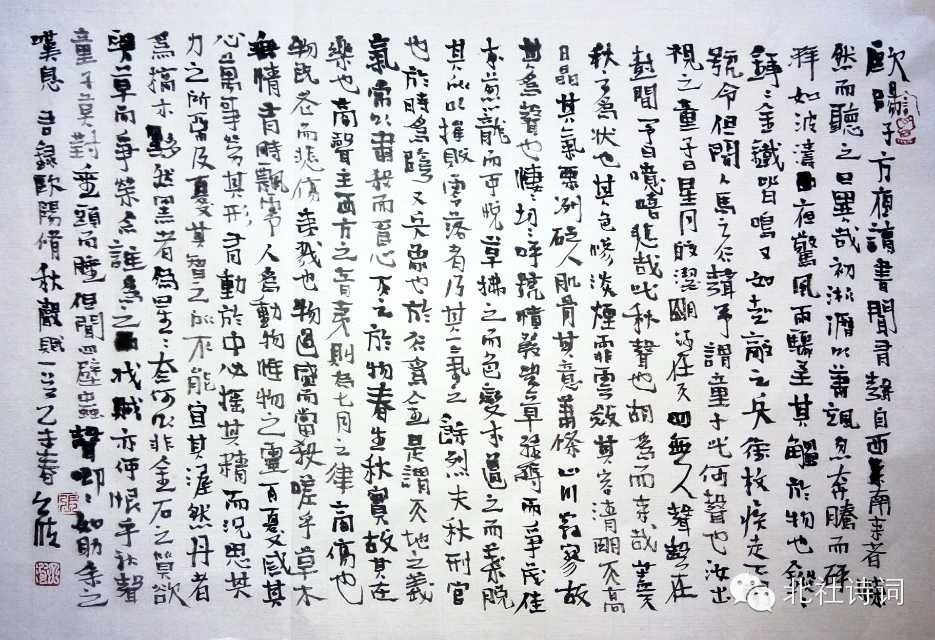 歐陽子方夜讀書聞有聲自西南來者悚
然而聽之曰異哉初淅瀝以蕭颯忽奔騰而砰
湃如波濤夜驚風雨驟至其觸於物也鏦鏦
錚錚金鐵皆鳴又如赴敵之兵銜枚疾走不聞
號令但聞人馬之行聲予謂童子此何聲也汝出
視之童子曰星月皎潔明河在天四無人聲聲在
樹間予曰噫嘻悲哉此秋聲也胡為而來哉蓋夫
秋之為狀也其色慘淡煙霏雲斂其容清明天高
日晶其氣慄冽砭人肌骨其意蕭條山川寂寥故
其為聲也悽切呼號憤發豐草綠縟而爭茂佳
木蔥蘢而可悅草拂之而色變木遭之而葉脫
其所以摧敗零落者乃其一氣之餘烈夫秋刑官
也於時為陰又兵象也於行為金是謂天地之義
氣常以肅殺而為心天之於物春生秋實故其在
樂也商聲主西方之音夷則為七月之律商傷也
物既老而悲傷夷戮也物過盛而當殺嗟乎草木
無情有時飄零人為動物惟物之靈百憂感其
心萬事勞其形有動於中必搖其精而況思其
力之所不及憂其智之所不能宜其渥然丹者
為槁木黟然黑者為星星奈何以非金石之質欲
與草而爭榮念誰為之戕賊亦何恨乎秋聲
童子莫對垂頭而睡但聞四壁蟲聲唧唧如助余之
嘆息 右錄歐陽脩秋聲賦 乙未春
北社诗词